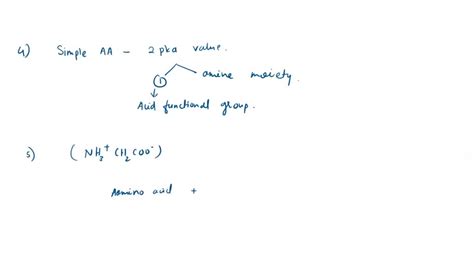 4) Simple AA - 2 pka value.
① amine moiety.
Acid functional group.
5) (NH₃⁺CH₂COO⁻)
Aamino acid +